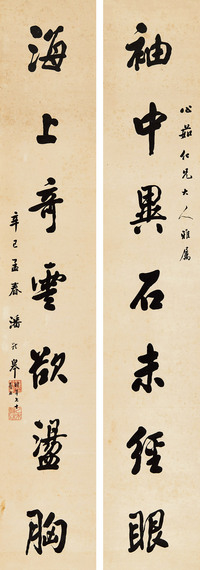 心茹仁兄大人雅属
袖中異石未經眼
海上奇雲欲盪胸
辛巳孟春 潘齡皋